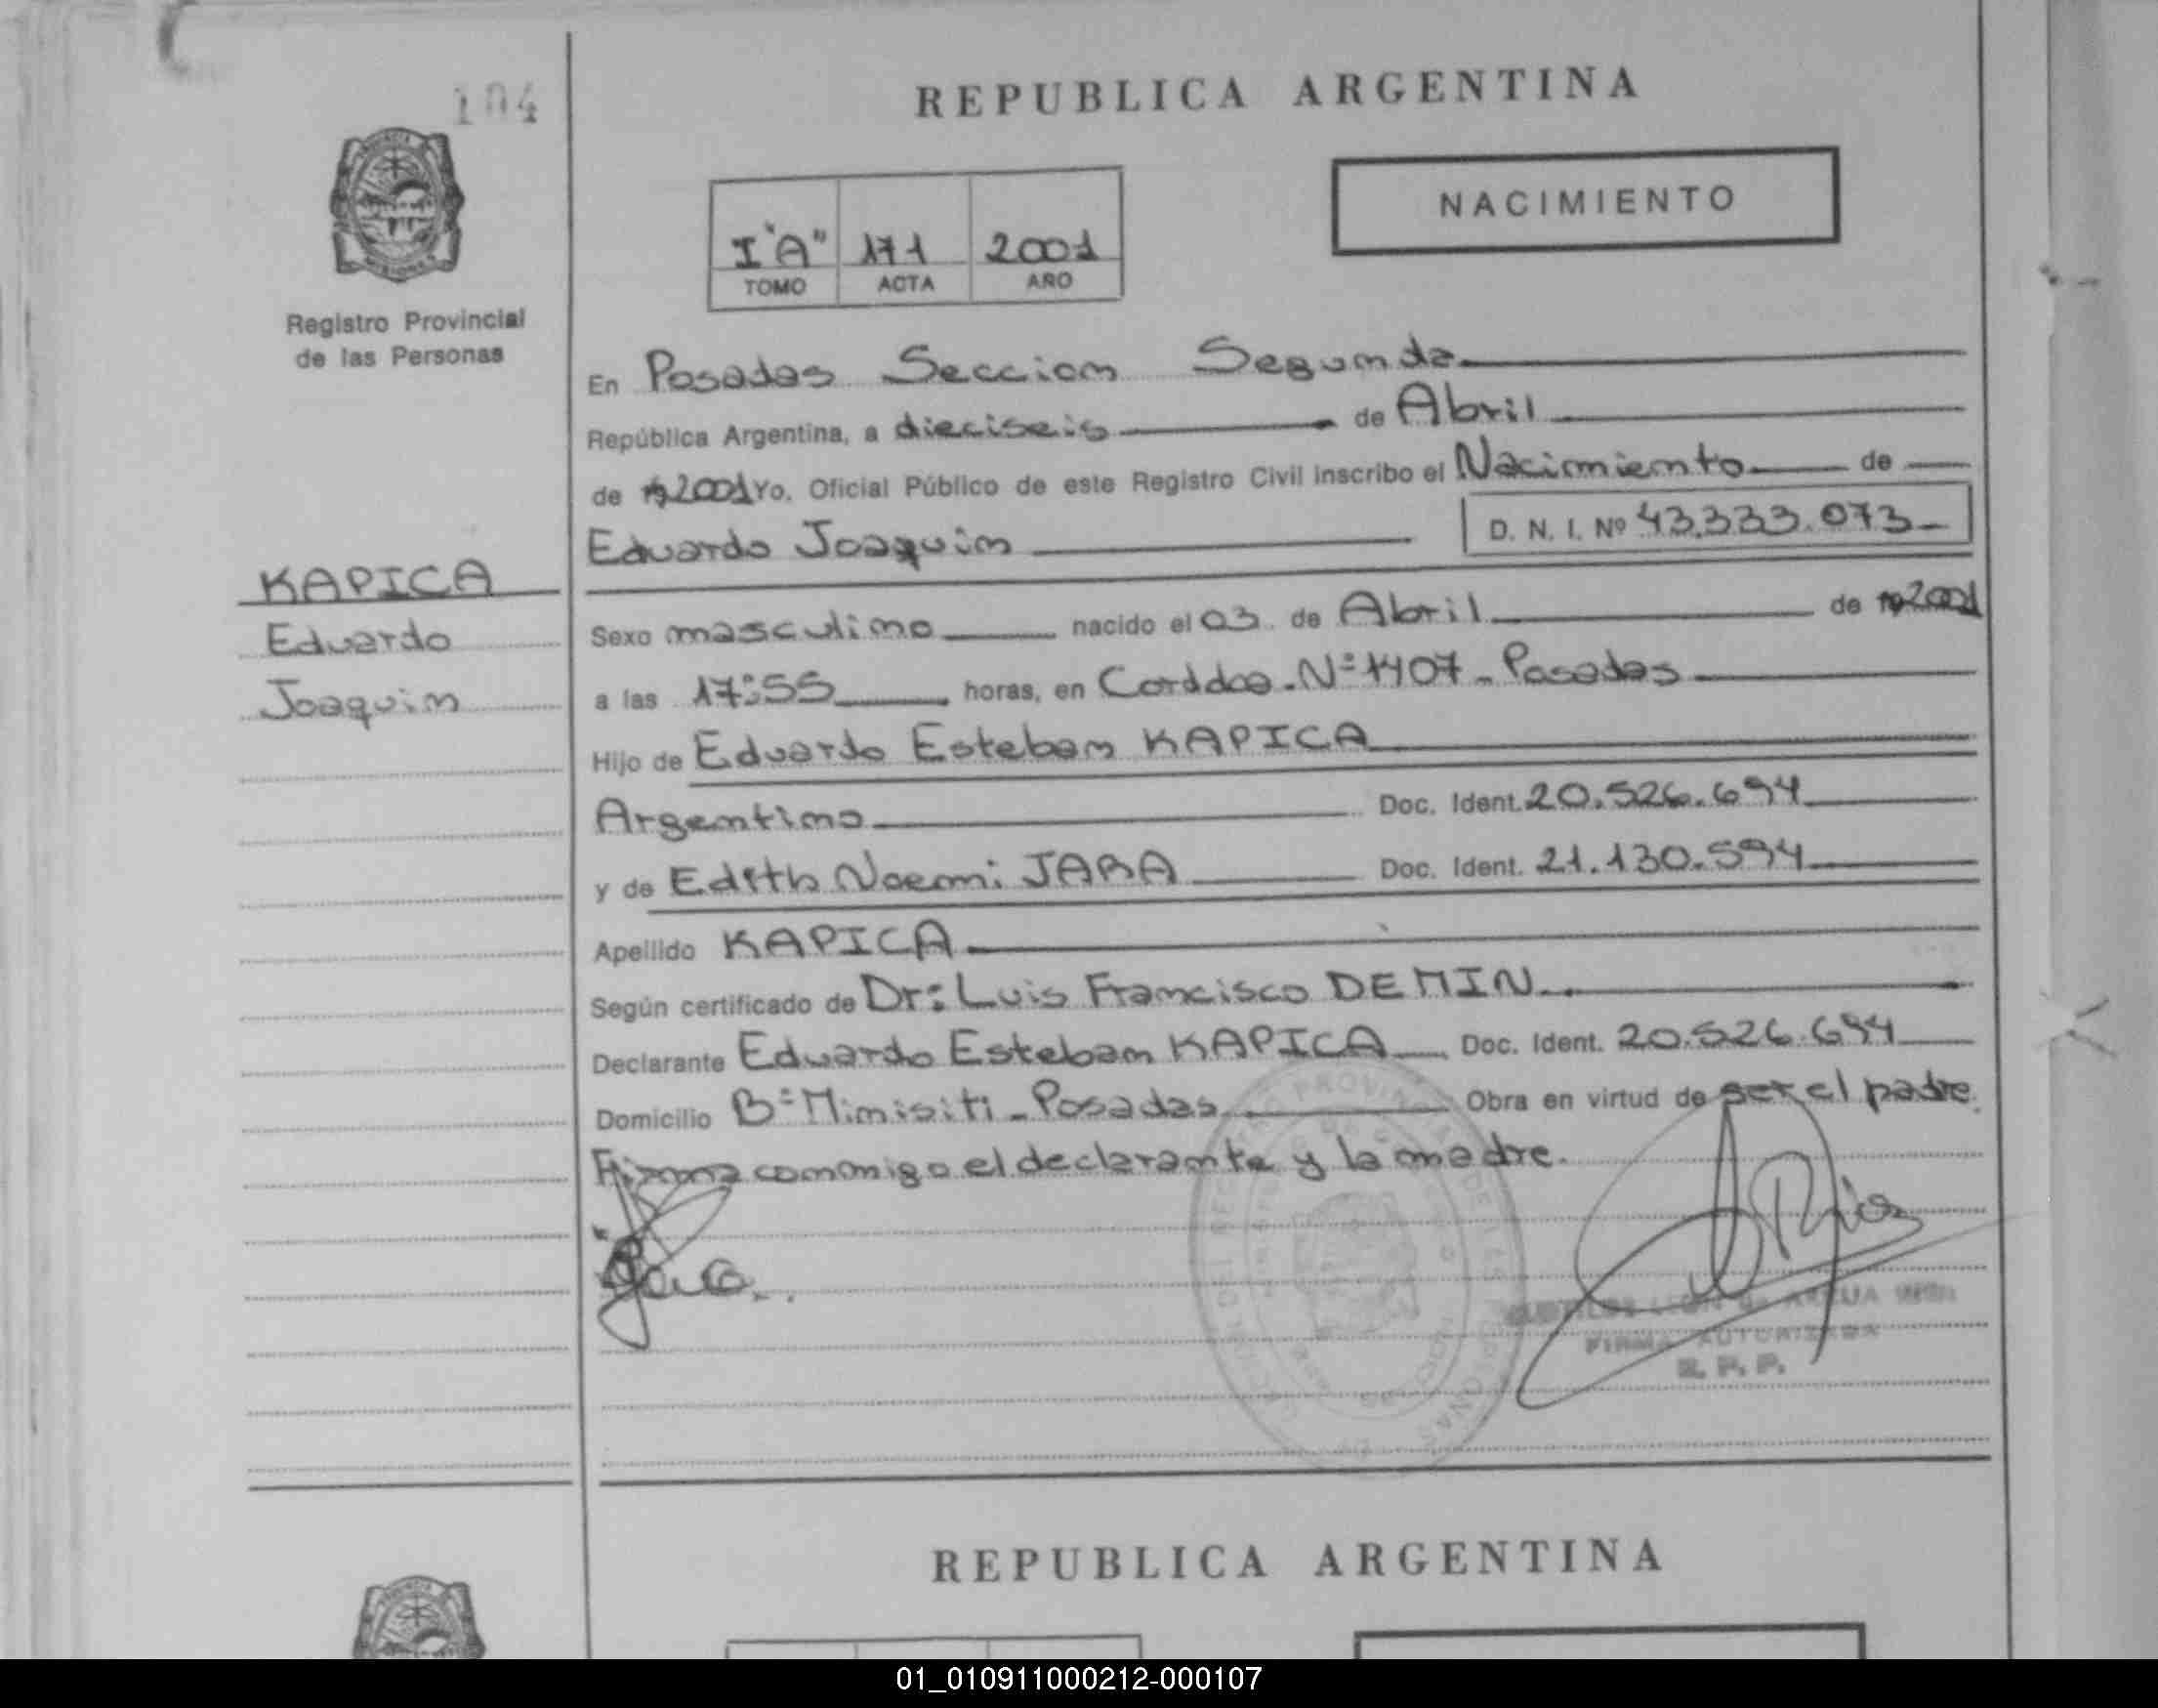 104
REPUBLICA ARGENTINA
NACIMIENTO
I "A" 171 2001
TOMO ACTA AÑO
Registro Provincial
de las Personas
En Posadas Seccion Segunda
República Argentina, a dieciseis de Abril
de 2001 Yo, Oficial Público de este Registro Civil inscribo el Nacimiento de
Eduardo Joaquin D. N. I. Nº 43.333.073
KAPICA
Eduardo
Joaquin
Sexo masculino nacido el 03 de Abril de 2001
a las 17:55 horas, en Corddoa Nº 1407 - Posadas
Hijo de Eduardo Esteban KAPICA
Argentino Doc. Ident. 20.526.694
y de Edith Noemi JARA Doc. Ident. 21.130.594
Apellido KAPICA
Según certificado de Dr: Luis Francisco DEMIN
Declarante Eduardo Esteban KAPICA Doc. Ident. 20.526.694
Domicilio Bº Minisiti - Posadas Obra en virtud de ser el padre.
Firma conmigo el declarante y la madre.
Jara
FIRMA AUTORIZADA
R. P. P.
REPUBLICA ARGENTINA
01_010911000212-000107